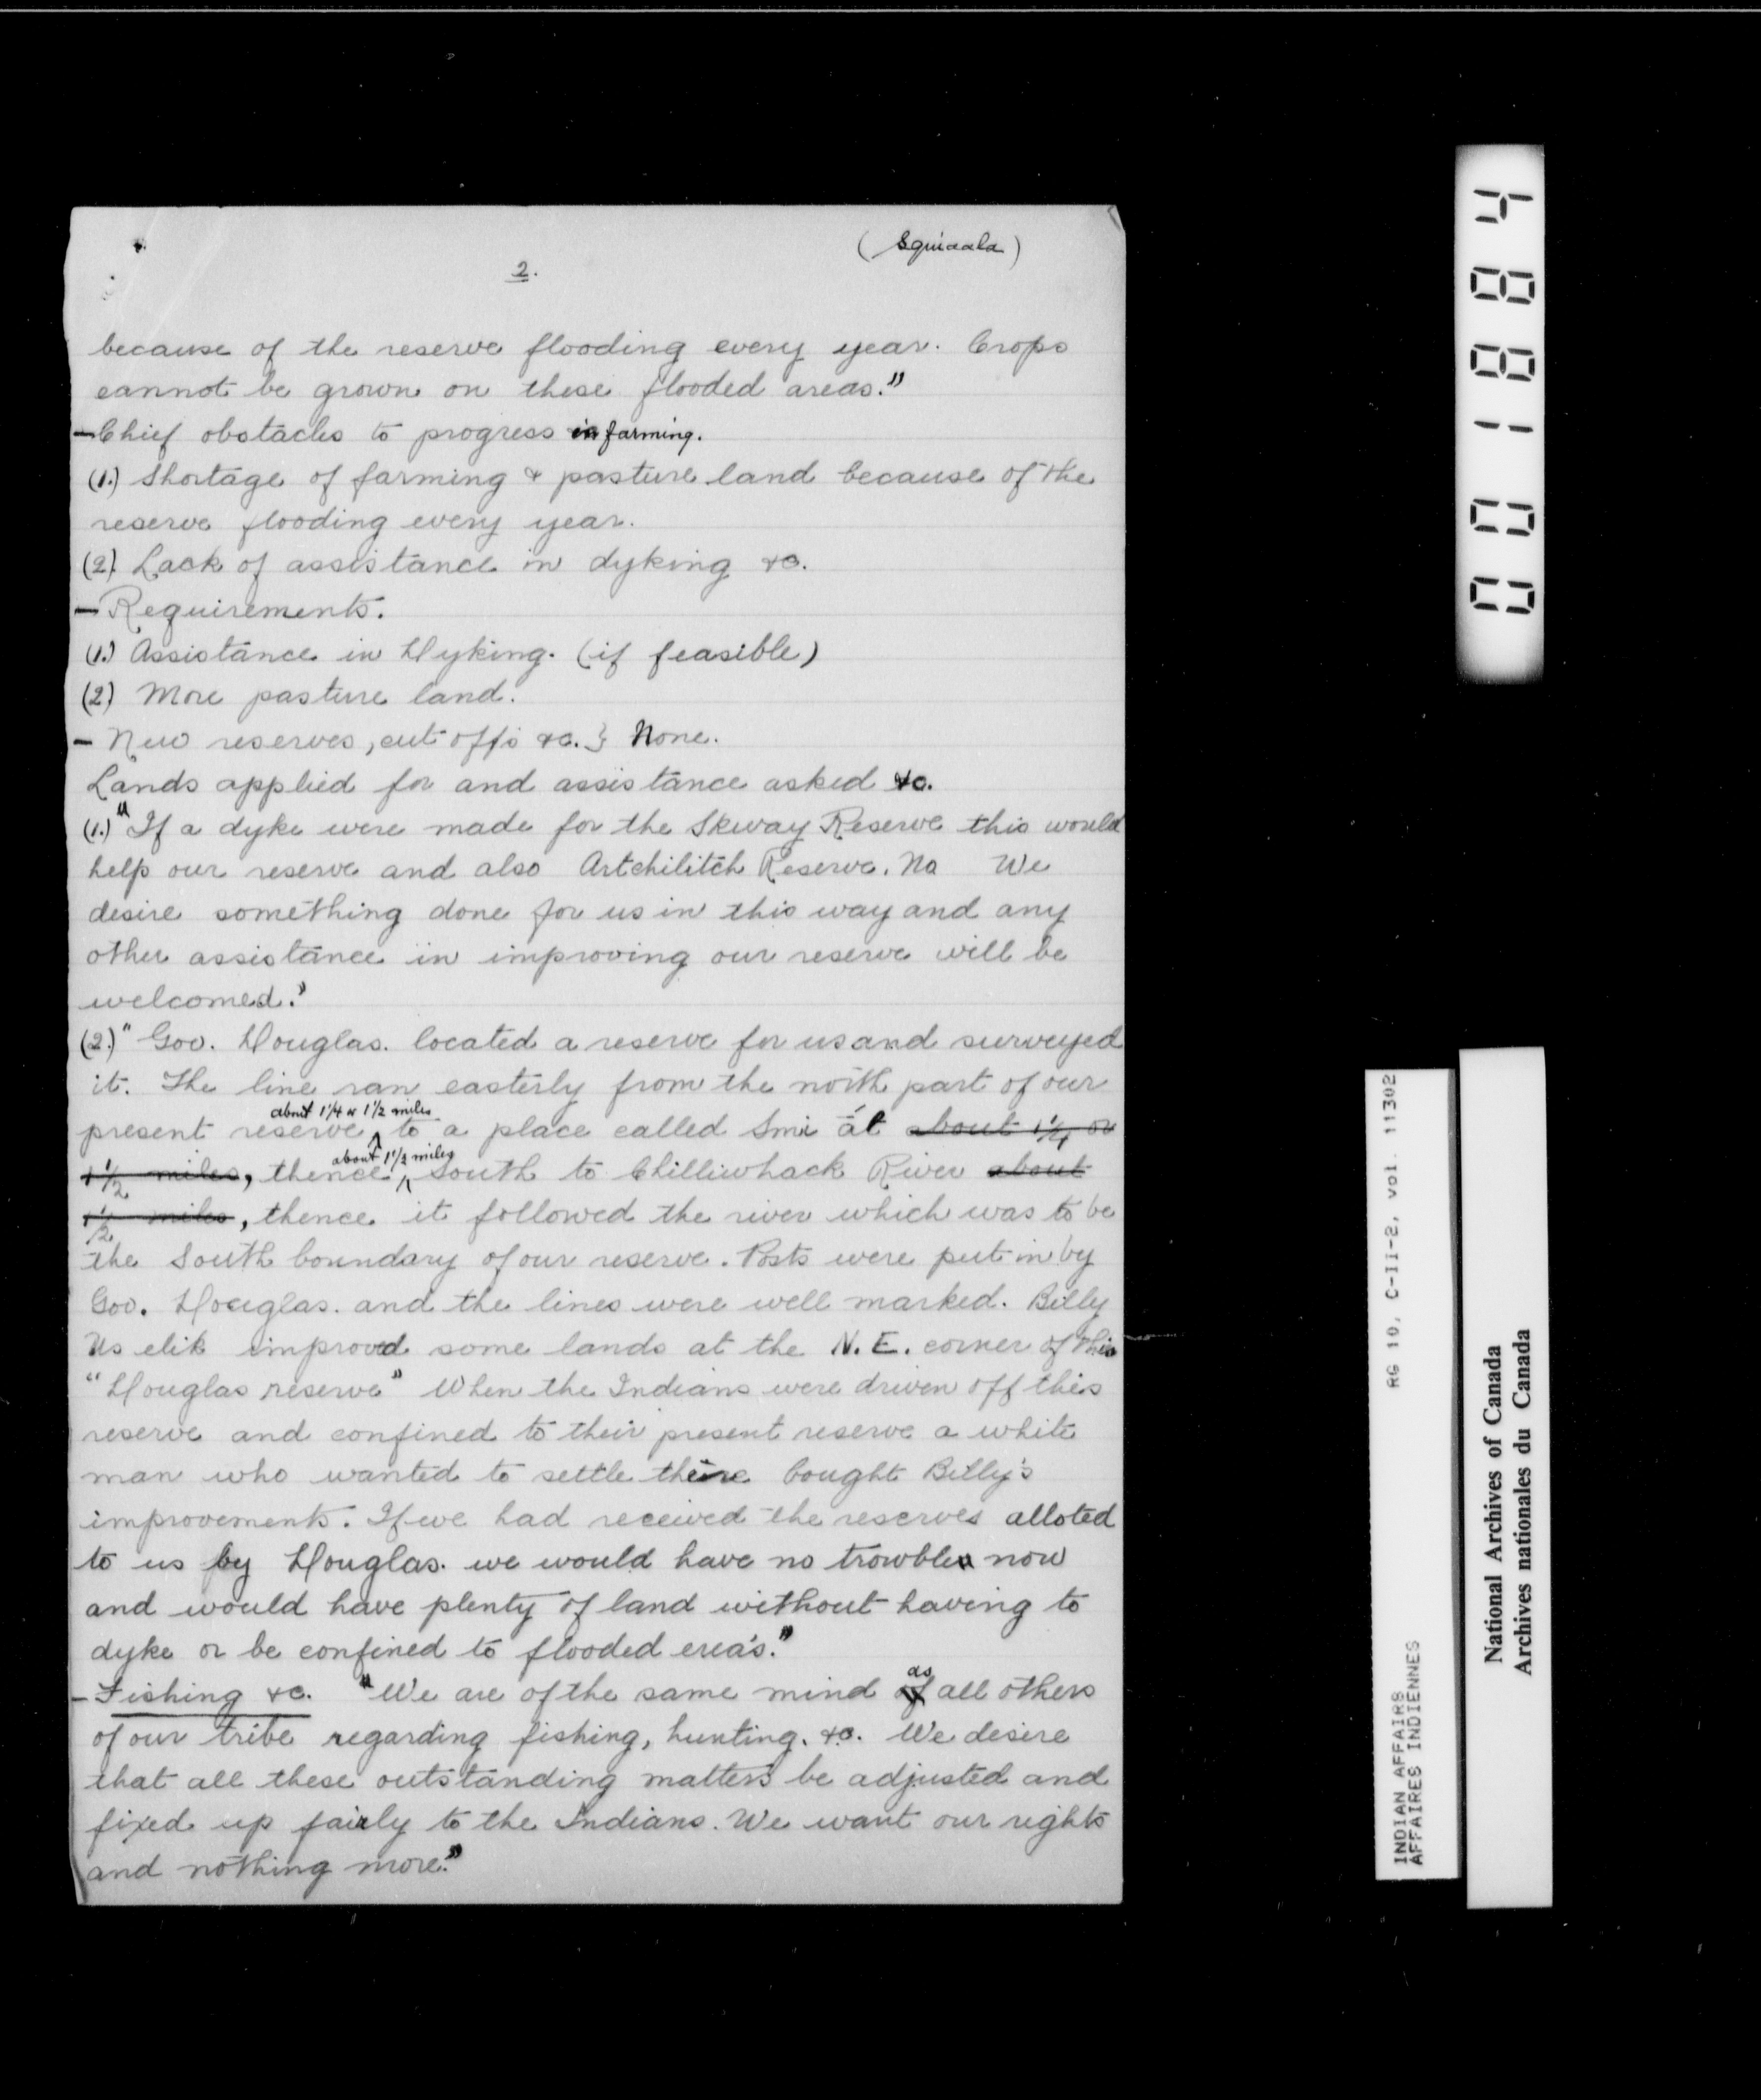 (Squiaala)
2.
because of the reserve flooding every year. Crops
cannot be grown on these flooded areas."
—Chief obstacles to progress in farming.
(1.) Shortage of farming & pasture land because of the
reserve flooding every year.
(2) Lack of assistance in dyking &c.
—Requirements.
(1.) Assistance in Dyking. (if feasible)
(2) More pasture land.
— New reserves, cut offs &c. } None.
Lands applied for and assistance asked &c.
(1.) "If a dyke were made for the Skway Reserve this would
help our reserve and also Artchilitch Reserve. No We
desire something done for us in this way and any
other assistance in improving our reserve will be
welcomed."
(2.) "Gov. Douglas. located a reserve for us and surveyed
it. The line ran easterly from the north part of our
about 1 1/4 or 1 1/2 miles
present reserve, to a place called Smi āt about 1 1/4 or
about 1 1/2 miles
1 1/2 miles, thence, South to Chilliwhack River about
1 1/2 miles, thence it followed the river which was to be
the South boundary of our reserve. Posts were put in by
Gov. Douglas. and the lines were well marked. Billy
Us elik improved some lands at the N.E. corner of this
"Douglas reserve" When the Indians were driven off this
reserve and confined to their present reserve a white
man who wanted to settle there bought Billy's
improvements. If we had received the reserves alloted
to us by Douglas. we would have no trouble now
and would have plenty of land without having to
dyke or be confined to flooded erea's."
as
—Fishing &c. "We are of the same mind of all others
of our tribe regarding fishing, hunting. &c. We desire
that all these outstanding matters be adjusted and
fixed up fairly to the Indians. We want our rights
and nothing more."
001884
RG 10, C-II-2, vol. 11302
INDIAN AFFAIRS
AFFAIRES INDIENNES
National Archives of Canada
Archives nationales du Canada